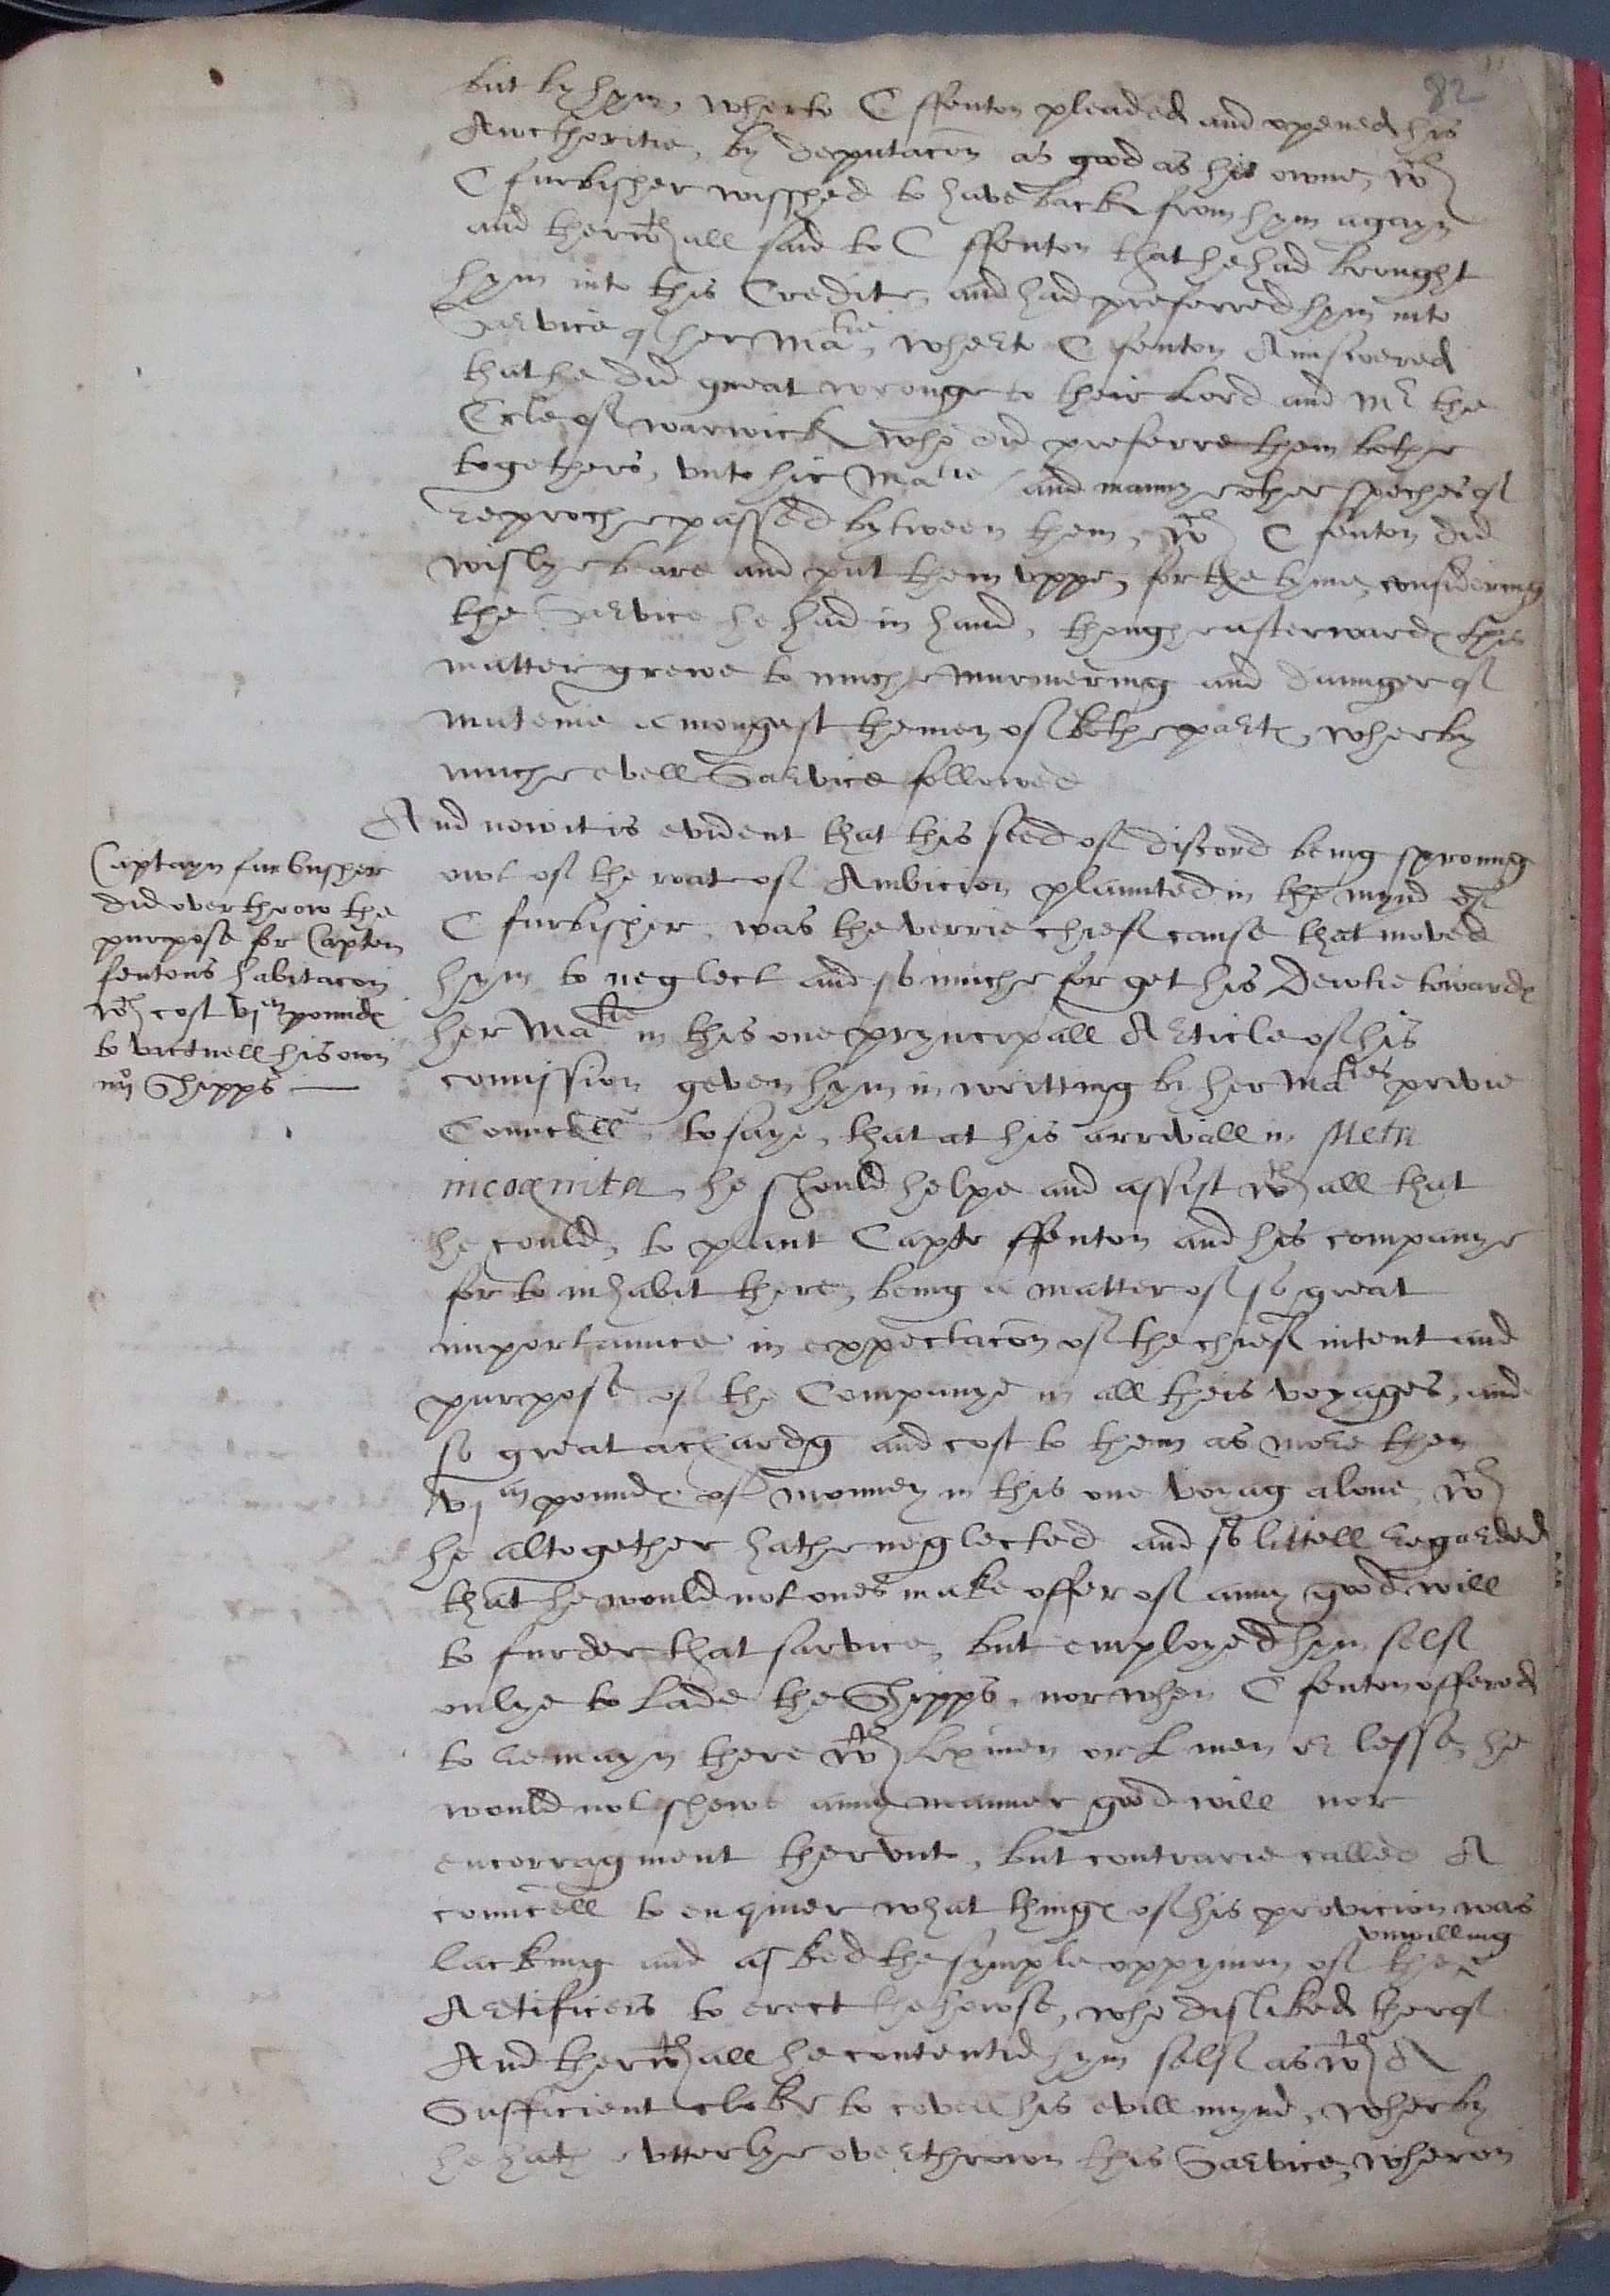 82
but by hym, wherto C ffenton pleaded and opened his
Awcthoritie, by deputacon as good as his owne, wch
C furbisher wisshed to have back from hym agayn
and therwth all said to C ffenton that he had brought
hym into this Credite, and had preferred hym into
Service of her Matie, wherto C fenton Aunswered
that he did great wronge to their Lord and Mr the
Erle of warwick who did preferre them bothe
togethers, unto hir Matie and manny other speches of
Reproche passed bytween them, wch C fenton did
wislye beare and put them uppe, for the tyme, considering
the Service he had in hand, though afterwardes this
matter grewe to muche murmering and daunger of
mutenie amongest the men of bothe partes, wherby
muche evell Service followed
And now it is evident that this seed of discord being sproung
owt of the roote of Ambicion plaunted in the mynd of
C furbisher, was the verrie chief cause that moved
hym to neglect and so muche forget his Dewtie towardes
her Matie in this one pryncipall Article of his
comission geven hym in writting by her Maties privie
Councell, to saye, that at his arrivall in Meta
incognita, he should helpe and assist wth all that
he could, to plant Capte ffenton and his companye
for to inhabit there, being a matter of so great
importaunce in expectacon of the chief intent and
purpose of the Companye in all theis voyages, and
so great a chardg and cost to them as more then
vj m poundes of monney in this one voyag alone, wch
he altogether hathe neglected and so littell regarded
that he would not ones make offer of anny good will
to furder that sarvice, but employed hym self
onlye to lade the Shipps, nor when C fenton offered
to remayn there wth lx men or L men or lesse, he
would not shewe anny manner good will nor
encorragment therunto, but contrarie called A
councell to enquier what thinges of his provicion was
lacking and asked the symple oppynion of the unwilling
Artificers to erect the howse, who disliked therof
And therwth all he contentid hym self as wth A
Sufficient cloke to cover his evill mynd, wherby
he hath utterlye overthrown this Sarvice, wheron
Captayn furbusher
did overthrow the
purpose for Capten
fentons habitacon
wch cost vj m poundes
to victuell his own
iiij Shipps